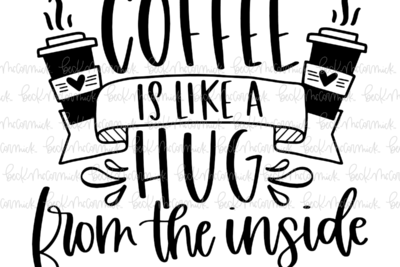 COFFEE
IS LIKE A
HUG
from the inside